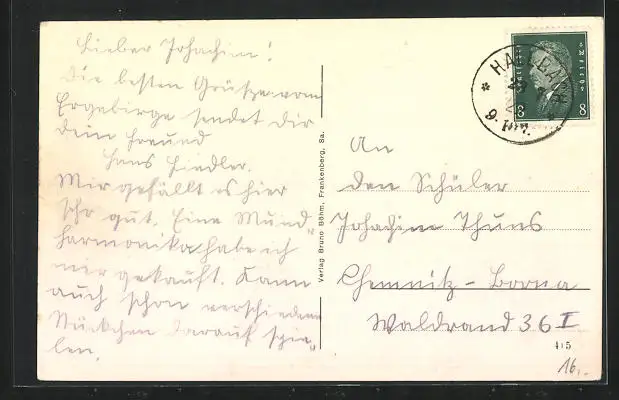 Lieber Johachim!
Die besten Grüße vom
Ergebirge sendet dir
dein Freund
Hans Fiedler.
Mir gefällt es hier
sehr gut. Eine Mund-
harmonika habe ich
mir gekauft. Kann
auch schon verschiedene
Stückchen darauf spie-
len.
Verlag Bruno Böhm, Frankenberg, Sa.
8 8
An
den Schüler
Johachim Thuns
Chemnitz-Borna
Waldrand 36 I
415
16.-